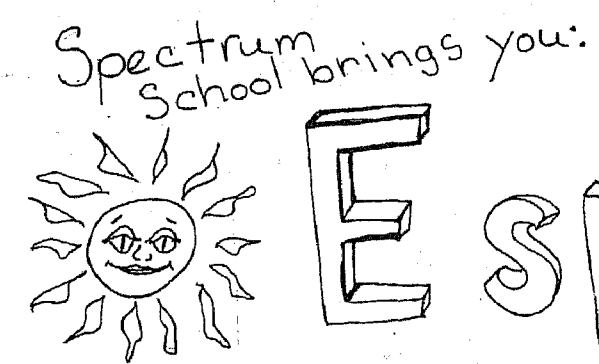 Spectrum
School brings you:
Es